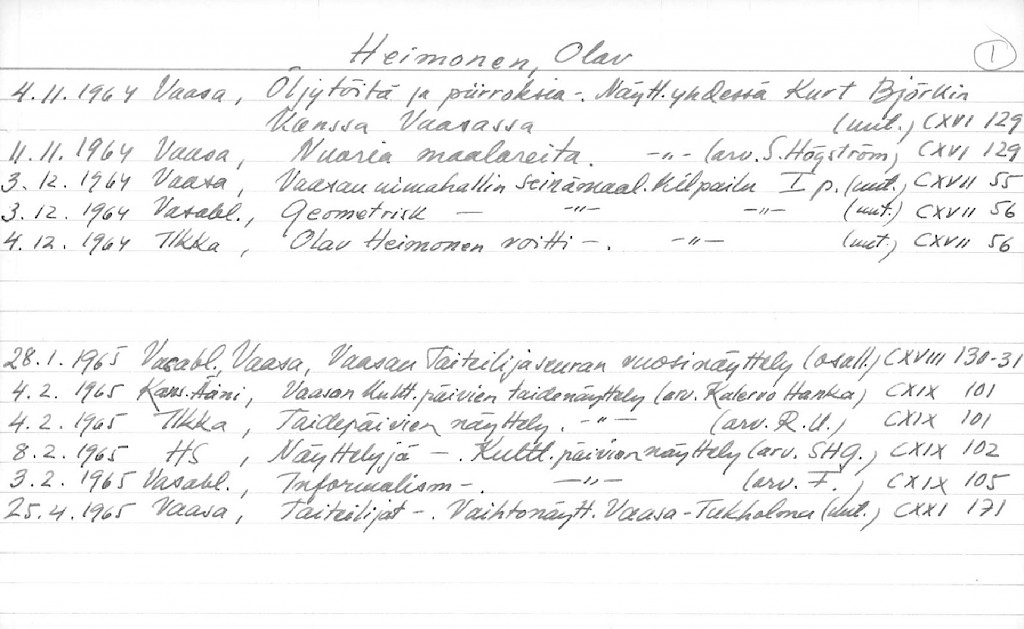 Heimonen, Olav
1
4.11.1964 Vaasa, Öljytöitä ja piirroksia -. Näytt. yhdessä Kurt Björkin
kanssa Vaasassa (uut.) CXVI 129
11.11.1964 Vaasa, Nuoria maalareita. -"- (arv. S. Högström) CXVI 129
3.12.1964 Vaasa, Vaasan uimahallin seinämaal. kilpailu I p. (uut.) CXVII 55
3.12.1964 Vasabl., Geometrisk — -"- -"- (uut.) CXVII 56
4.12.1964 Ilkka, Olav Heimonen voitti -. -"- (uut.) CXVII 56
28.1.1965 Vasabl., Vaasa, Vaasan Taiteilijaseuran vuosinäyttely (osall.) CXVIII 130-31
4.2.1965 Kans. Ääni, Vaasan kultt. päivien taidenäyttely (arv. Kalervo Hanka) CXIX 101
4.2.1965 Ilkka, Taidepäivien näyttely. -"- (arv. R.U.) CXIX 101
8.2.1965 HS, Näyttelyjä -. Kultt. päivien näyttely (arv. SHg.) CXIX 102
3.2.1965 Vasabl., Informalism -. -"- (arv. F.) CXIX 105
25.4.1965 Vaasa, Taiteilijat -. Vaihtonäytt. Vaasa-Tukholma (uut.) CXXI 171